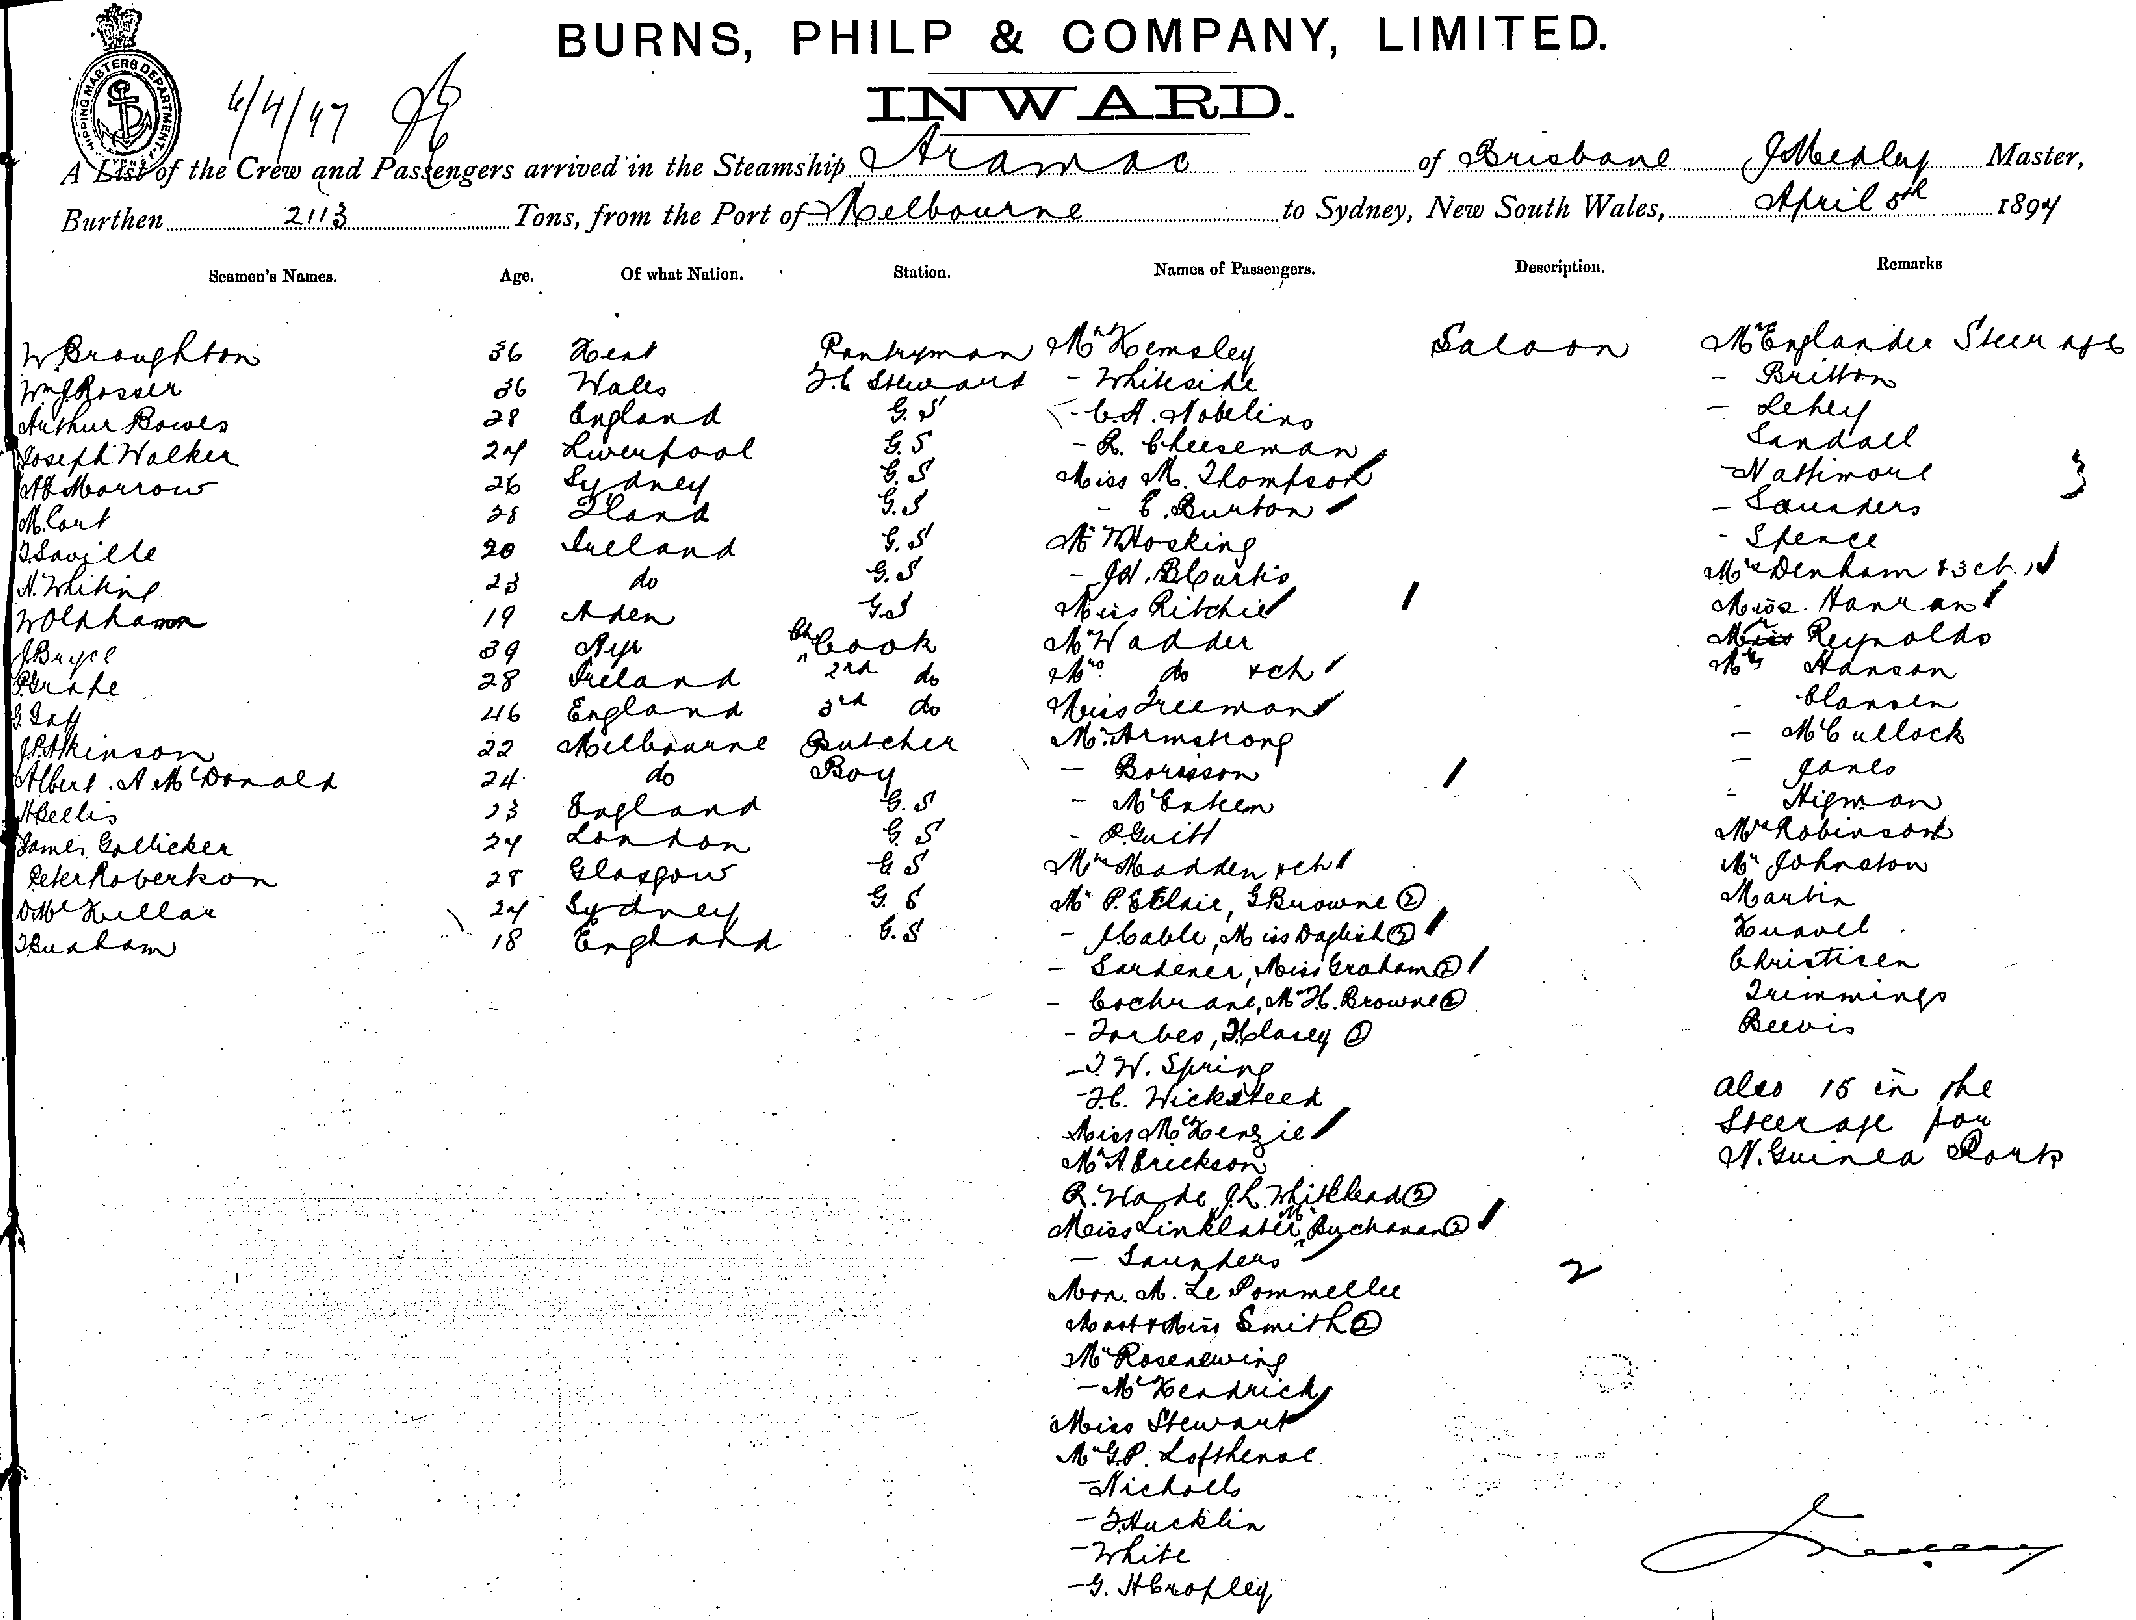 BURNS, PHILP & COMPANY, LIMITED.
INWARD.
SHIPPING MASTERS DEPARTMENT
6/4/97
A List of the Crew and Passengers arrived in the Steamship Aramac of Brisbane J Medley Master,
Burthen 2113 Tons, from the Port of Melbourne to Sydney, New South Wales, April 5th 1897
Seamen's Names. Age. Of what Nation. Station. Names of Passengers. Description. Remarks
W. Broughton 36 Kent Pantryman Mr Kemsley Saloon Mr Englander Steerage
Wm J Rosser 36 Wales F.C Steward - Whiteside - Britton
Arthur Bowes 28 England G.S - C.A. Nobelins - Lehey
Joseph Walker 24 Liverpool G.S - R. Cheeseman Sandall
Morrow 26 Sydney G.S Miss M. Thompson - Nattimore
M. Cort 28 G.S - E. Burton - Saunders
Saville 20 Ireland G.S Mr Hosking - Spence
A. Whiting 23 do G.S - Curtis Mrs Denham & 3 ch
W Oldham 19 Aden G.S Miss Ritchie Miss Hanran
J Bryce 39 Ayr Ch Cook Mr Wadder Mr Reynolds
28 Ireland 2nd do Mrs do & ch Mr Hanson
46 England 3rd do Miss Freeman - Clansen
J. Atkinson 22 Melbourne Butcher Mr Armstrong - McCullock
Albert. A McDonald 24 do Boy - Borisson - Jones
23 England G.S - McEnteen - Higman
James Gollicker 24 London G.S - Guitt Mrs Robinson
Peter Robertson 28 Glasgow G S Mrs Madden & ch Mr Johnston
D McKellar 24 Sydney G. S Mr P. E Elsie, G Browne 2 Martin
18 England G.S - J Cable, Miss Daglish 2 Knavel
- Sardener, Miss Graham 2 Christisen
- Cochrane, Mr H. Browne 2 Trimmings
- Forbes, Casey 2 Beevis
- T. W. Spring
- H. Wicksteed also 15 in the
Miss McKenzie Steerage for
Mr A Erickson N. Guinea Ports
R. Wade, J. L. Whitehead 2
Miss Linklater, Mr Buchanan 2
- Saunders 2
Mon. M. Le Pommellee
Mast & Miss Smith 2
Mr Rosenewing
- McKendrick
Miss Stewart
Mr G.P. Lofthense
- Nicholls
- Hucklin
- White
- G. H Cropley